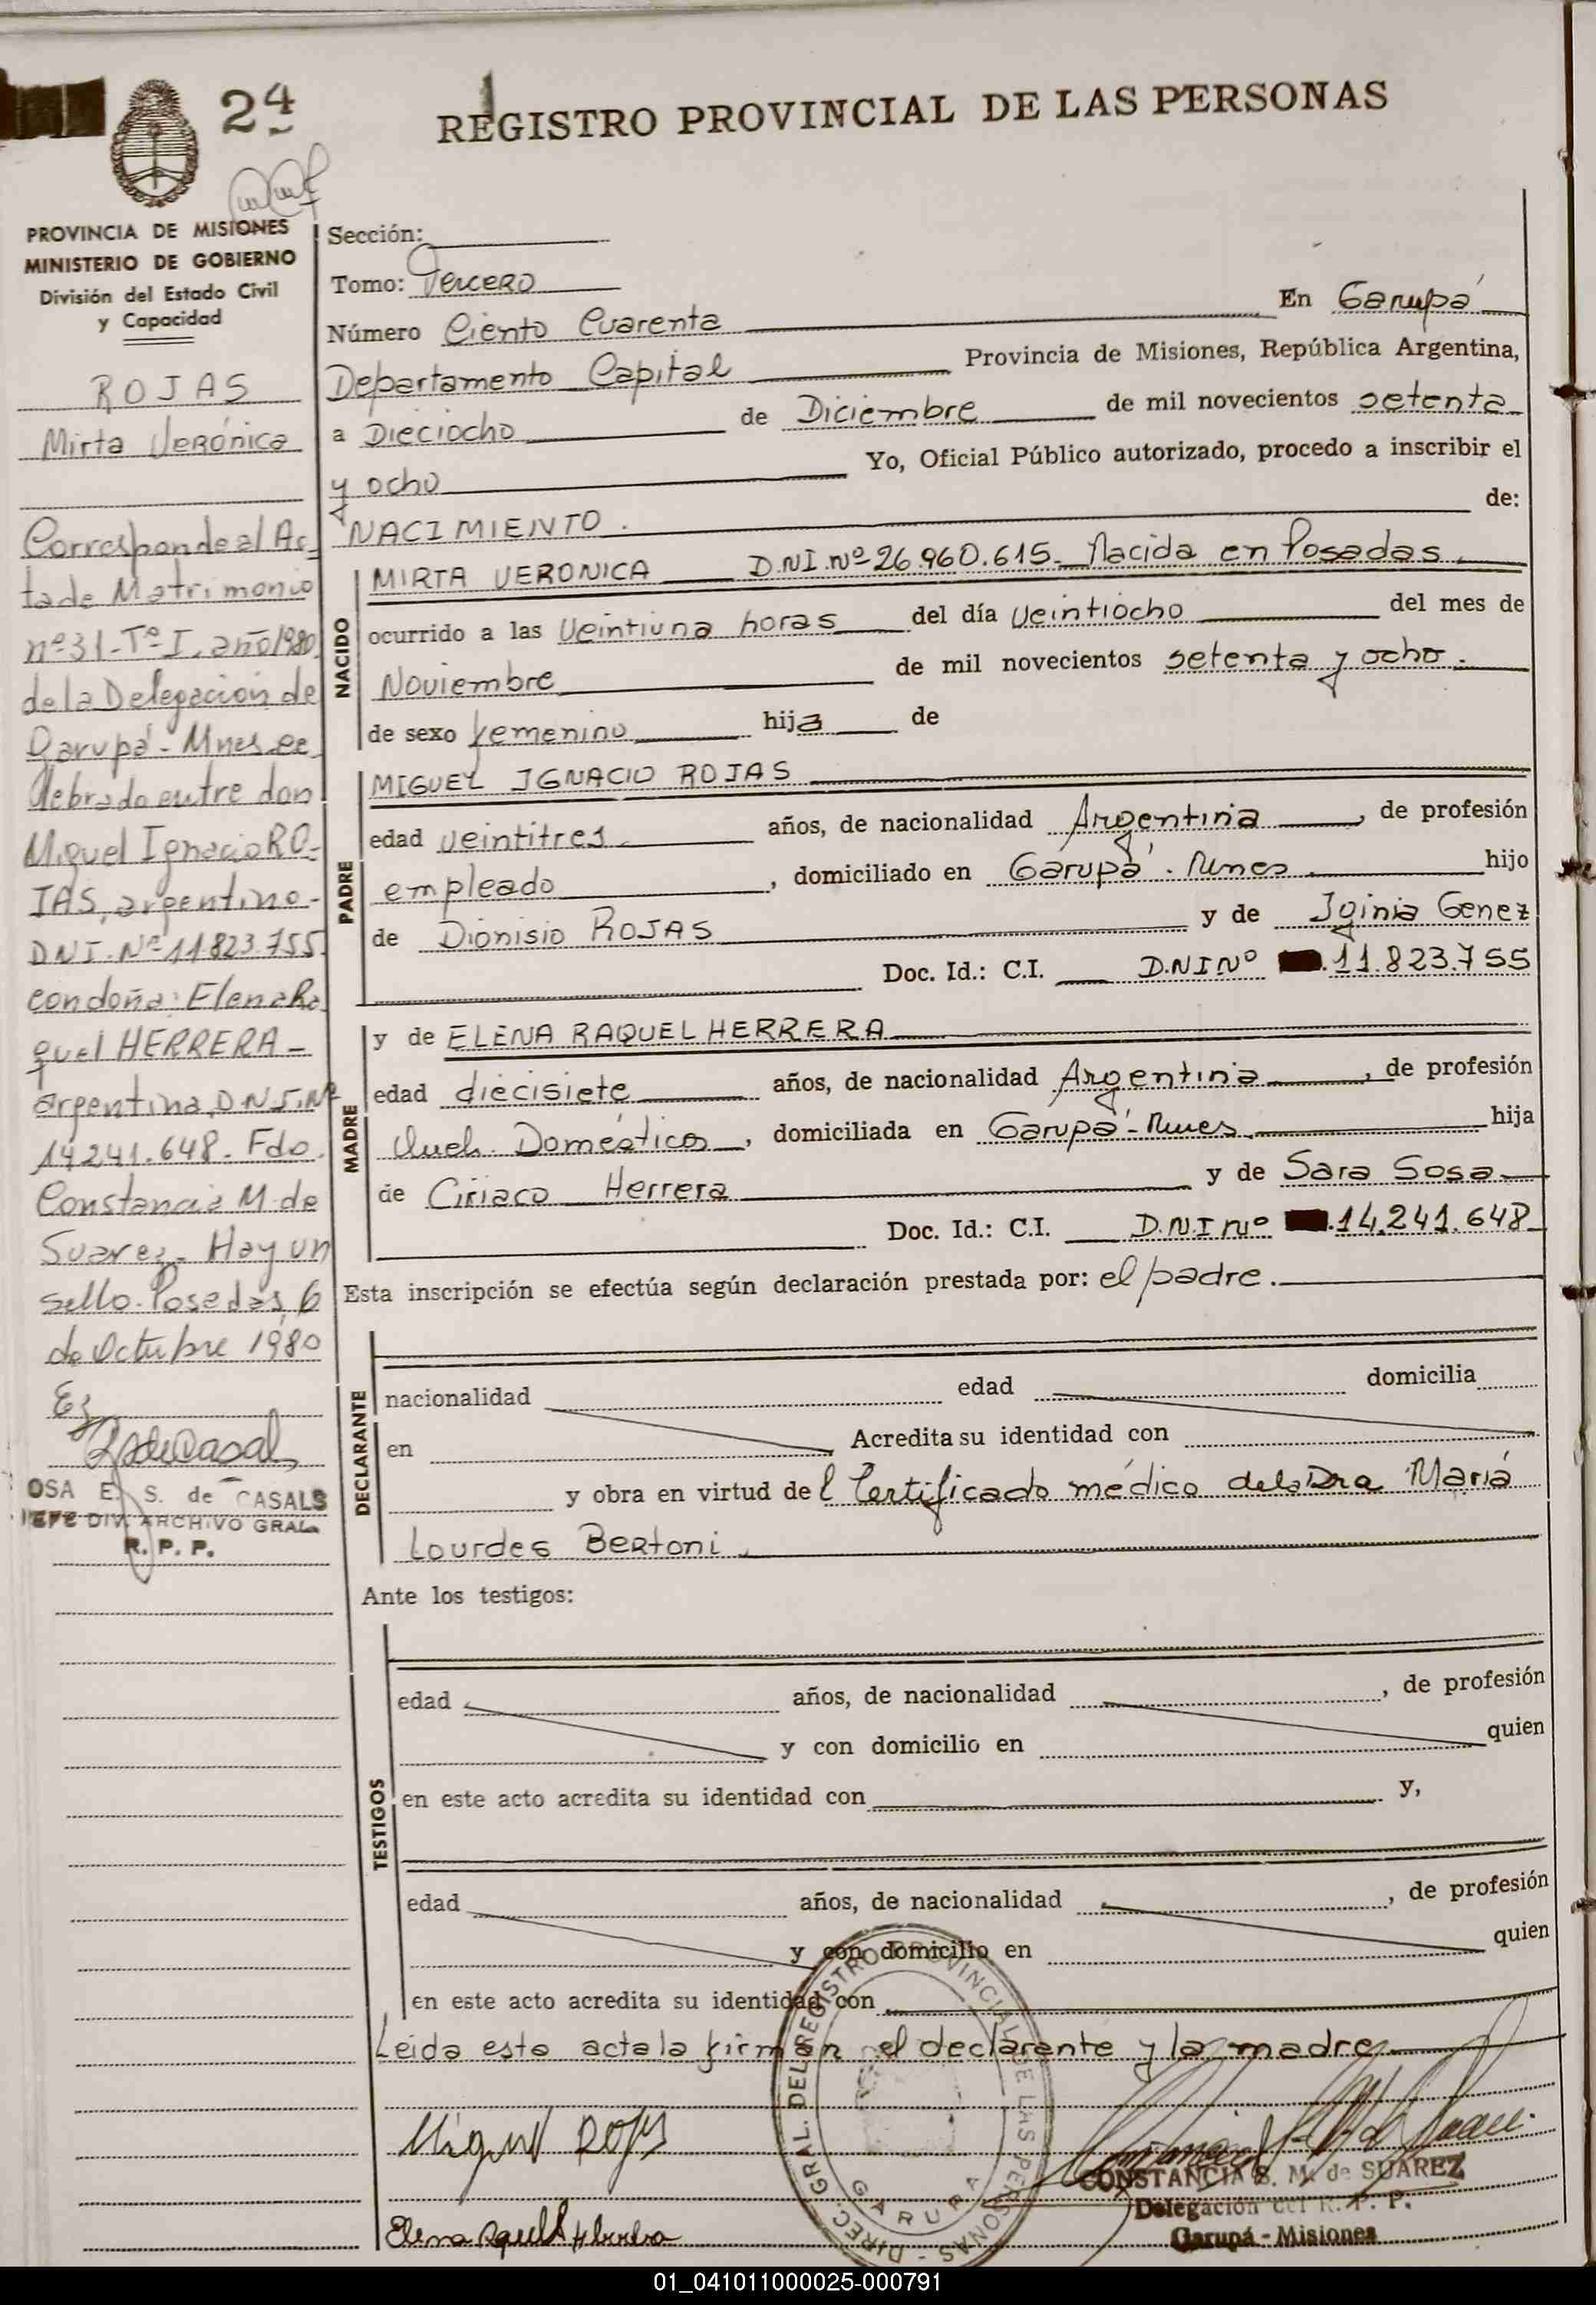 24
REGISTRO PROVINCIAL DE LAS PERSONAS
PROVINCIA DE MISIONES
MINISTERIO DE GOBIERNO
División del Estado Civil
y Capacidad
ROJAS
Mirta Verónica
Corresponde al Ac-
ta de Matrimonio
nº 31-Tº I. año 1980
de la Delegación de
Garupá - Mnes ce
lebrado entre don
Miguel Ignacio RO-
JAS, argentino-
DNI. Nº 11823.755
con doña: Elena Ra
quel HERRERA -
argentina, D.N.I. Nº
14241.648. Fdo.
Constancia M. de
Suarez. Hay un
sello. Posadas, 6
de Octubre 1980
OSA E. S. de CASALS
JEFE DIV. ARCHIVO GRAL.
R. P. P.
Sección:
Tomo: Tercero
Número Ciento Cuarenta En Garupá
Departamento Capital Provincia de Misiones, República Argentina,
a Dieciocho de Diciembre de mil novecientos setenta
y ocho Yo, Oficial Público autorizado, procedo a inscribir el
NACIMIENTO. de:
NACIDO
MIRTA VERONICA D.N.I. nº 26.960.615. Nacida en Posadas.
ocurrido a las Veintiuna horas del día Veintiocho del mes de
Noviembre de mil novecientos setenta y ocho.
de sexo femenino hija de
PADRE
MIGUEL IGNACIO ROJAS
edad veintitres años, de nacionalidad Argentina, de profesión
empleado, domiciliado en Garupá. Mnes hijo
de Dionisio ROJAS y de Iginia Genez
Doc. Id.: C.I. D.N.I Nº .11.823.755
MADRE
y de ELENA RAQUEL HERRERA
edad diecisiete años, de nacionalidad Argentina, de profesión
Queh. Domésticos, domiciliada en Garupá - Mnes. hija
de Ciriaco Herrera y de Sara Sosa
Doc. Id.: C.I. D.N.I nº .14.241.648
Esta inscripción se efectúa según declaración prestada por: el padre.
DECLARANTE
nacionalidad edad domicilia
en Acredita su identidad con
y obra en virtud del Certificado médico de la Dra María
Lourdes Bertoni
Ante los testigos:
TESTIGOS
edad años, de nacionalidad , de profesión
y con domicilio en quien
en este acto acredita su identidad con y,
edad años, de nacionalidad , de profesión
y con domicilio en quien
en este acto acredita su identidad con
Leída esta acta la firman el declarante y la madre
Miguel Rojas
Elena Raquel Herrera
DIREC. GRAL. DEL REGISTRO PROVINCIAL DE LAS PERSONAS -
GARUPA
CONSTANCIA S. M. de SUAREZ
Delegación del R. P. P.
Garupá - Misiones
01_041011000025-000791